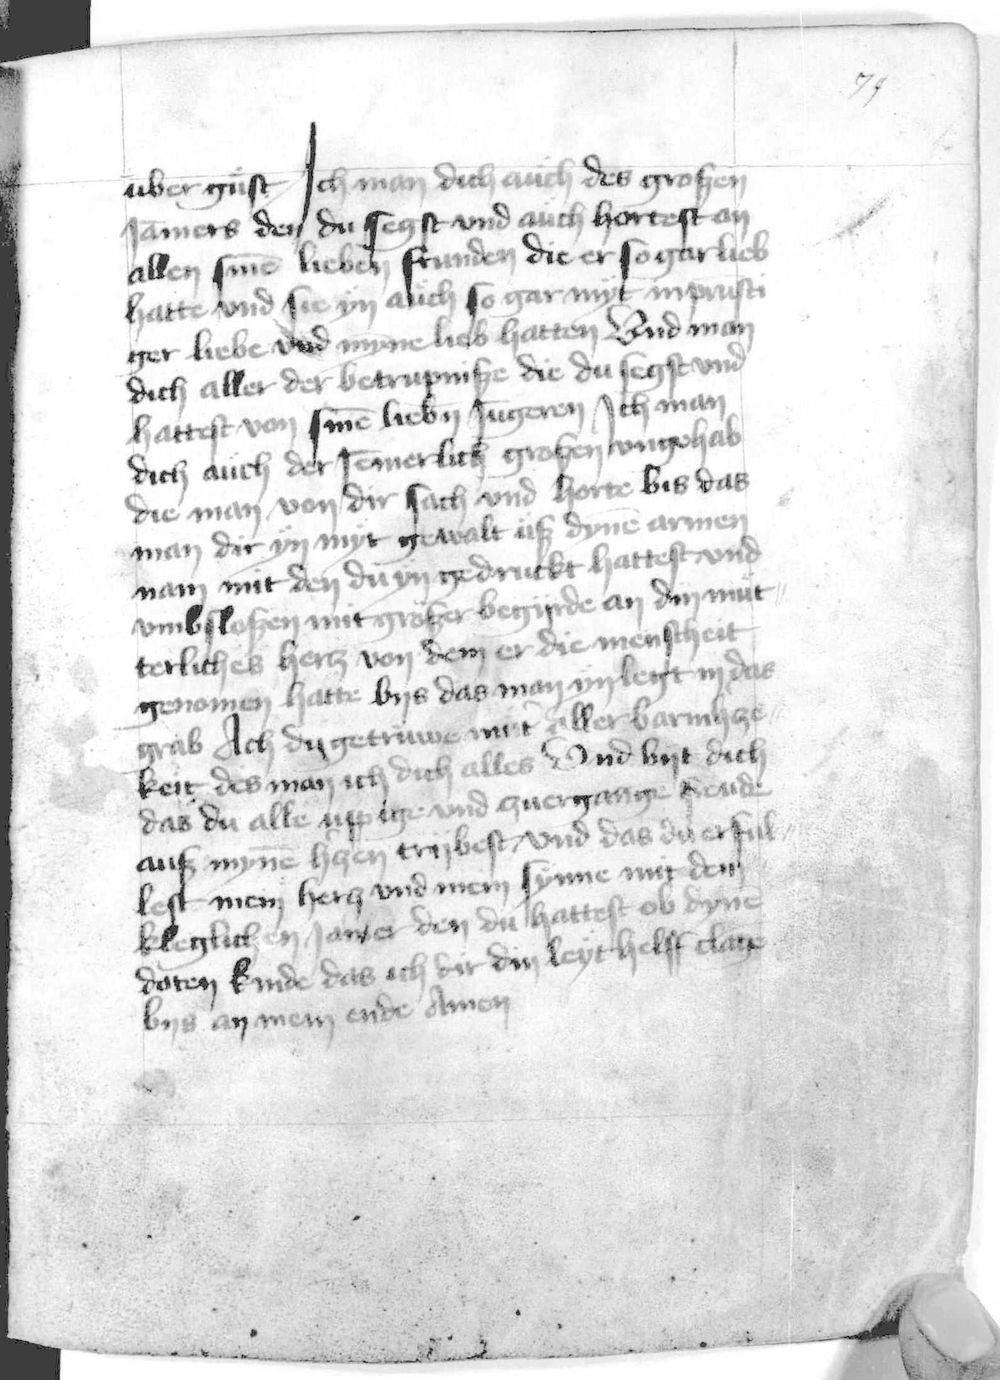 79
über güst Ich man dich aüch des großen
Jāmers den du segst vnd aüch hortest an
allen sinē lieben frunden die er so gar lieb
hatte vnd sie ÿn aüch so gar mÿt inprusti
ger liebe vnd mÿnne lieb hatten Vnd man
dich aller der betrupniße die du segst vnd
hattest von sinē liebn̄ Jūgeren Ich man
dich aüch der Jemerlich großen vngehab
die man von dir sach vnd horte bis das
man dir ÿn mÿt gewalt üß dÿnē armen
nam mit den dü ÿn gedruckt hattest vnd
vmbsloßen mit großer begijrde an din müt
terliches hertz von dem er die menscheit
genomen hatte bijs das man ÿn legt in das
grab Ach dü getruwe müt aller barmhtze
keit des man ich dich alles Vnd bijt dich
das du alle uppige vnd zuergange freude
auß mÿnē htzen trijbest vnd das dü erful
lest mein hertz vnd mein sÿnne mit dem
kleglichen Jamer den du hattest ob dÿnē
doten kinde das ich dir din leÿt helff clage
bijs an mein ende Amen